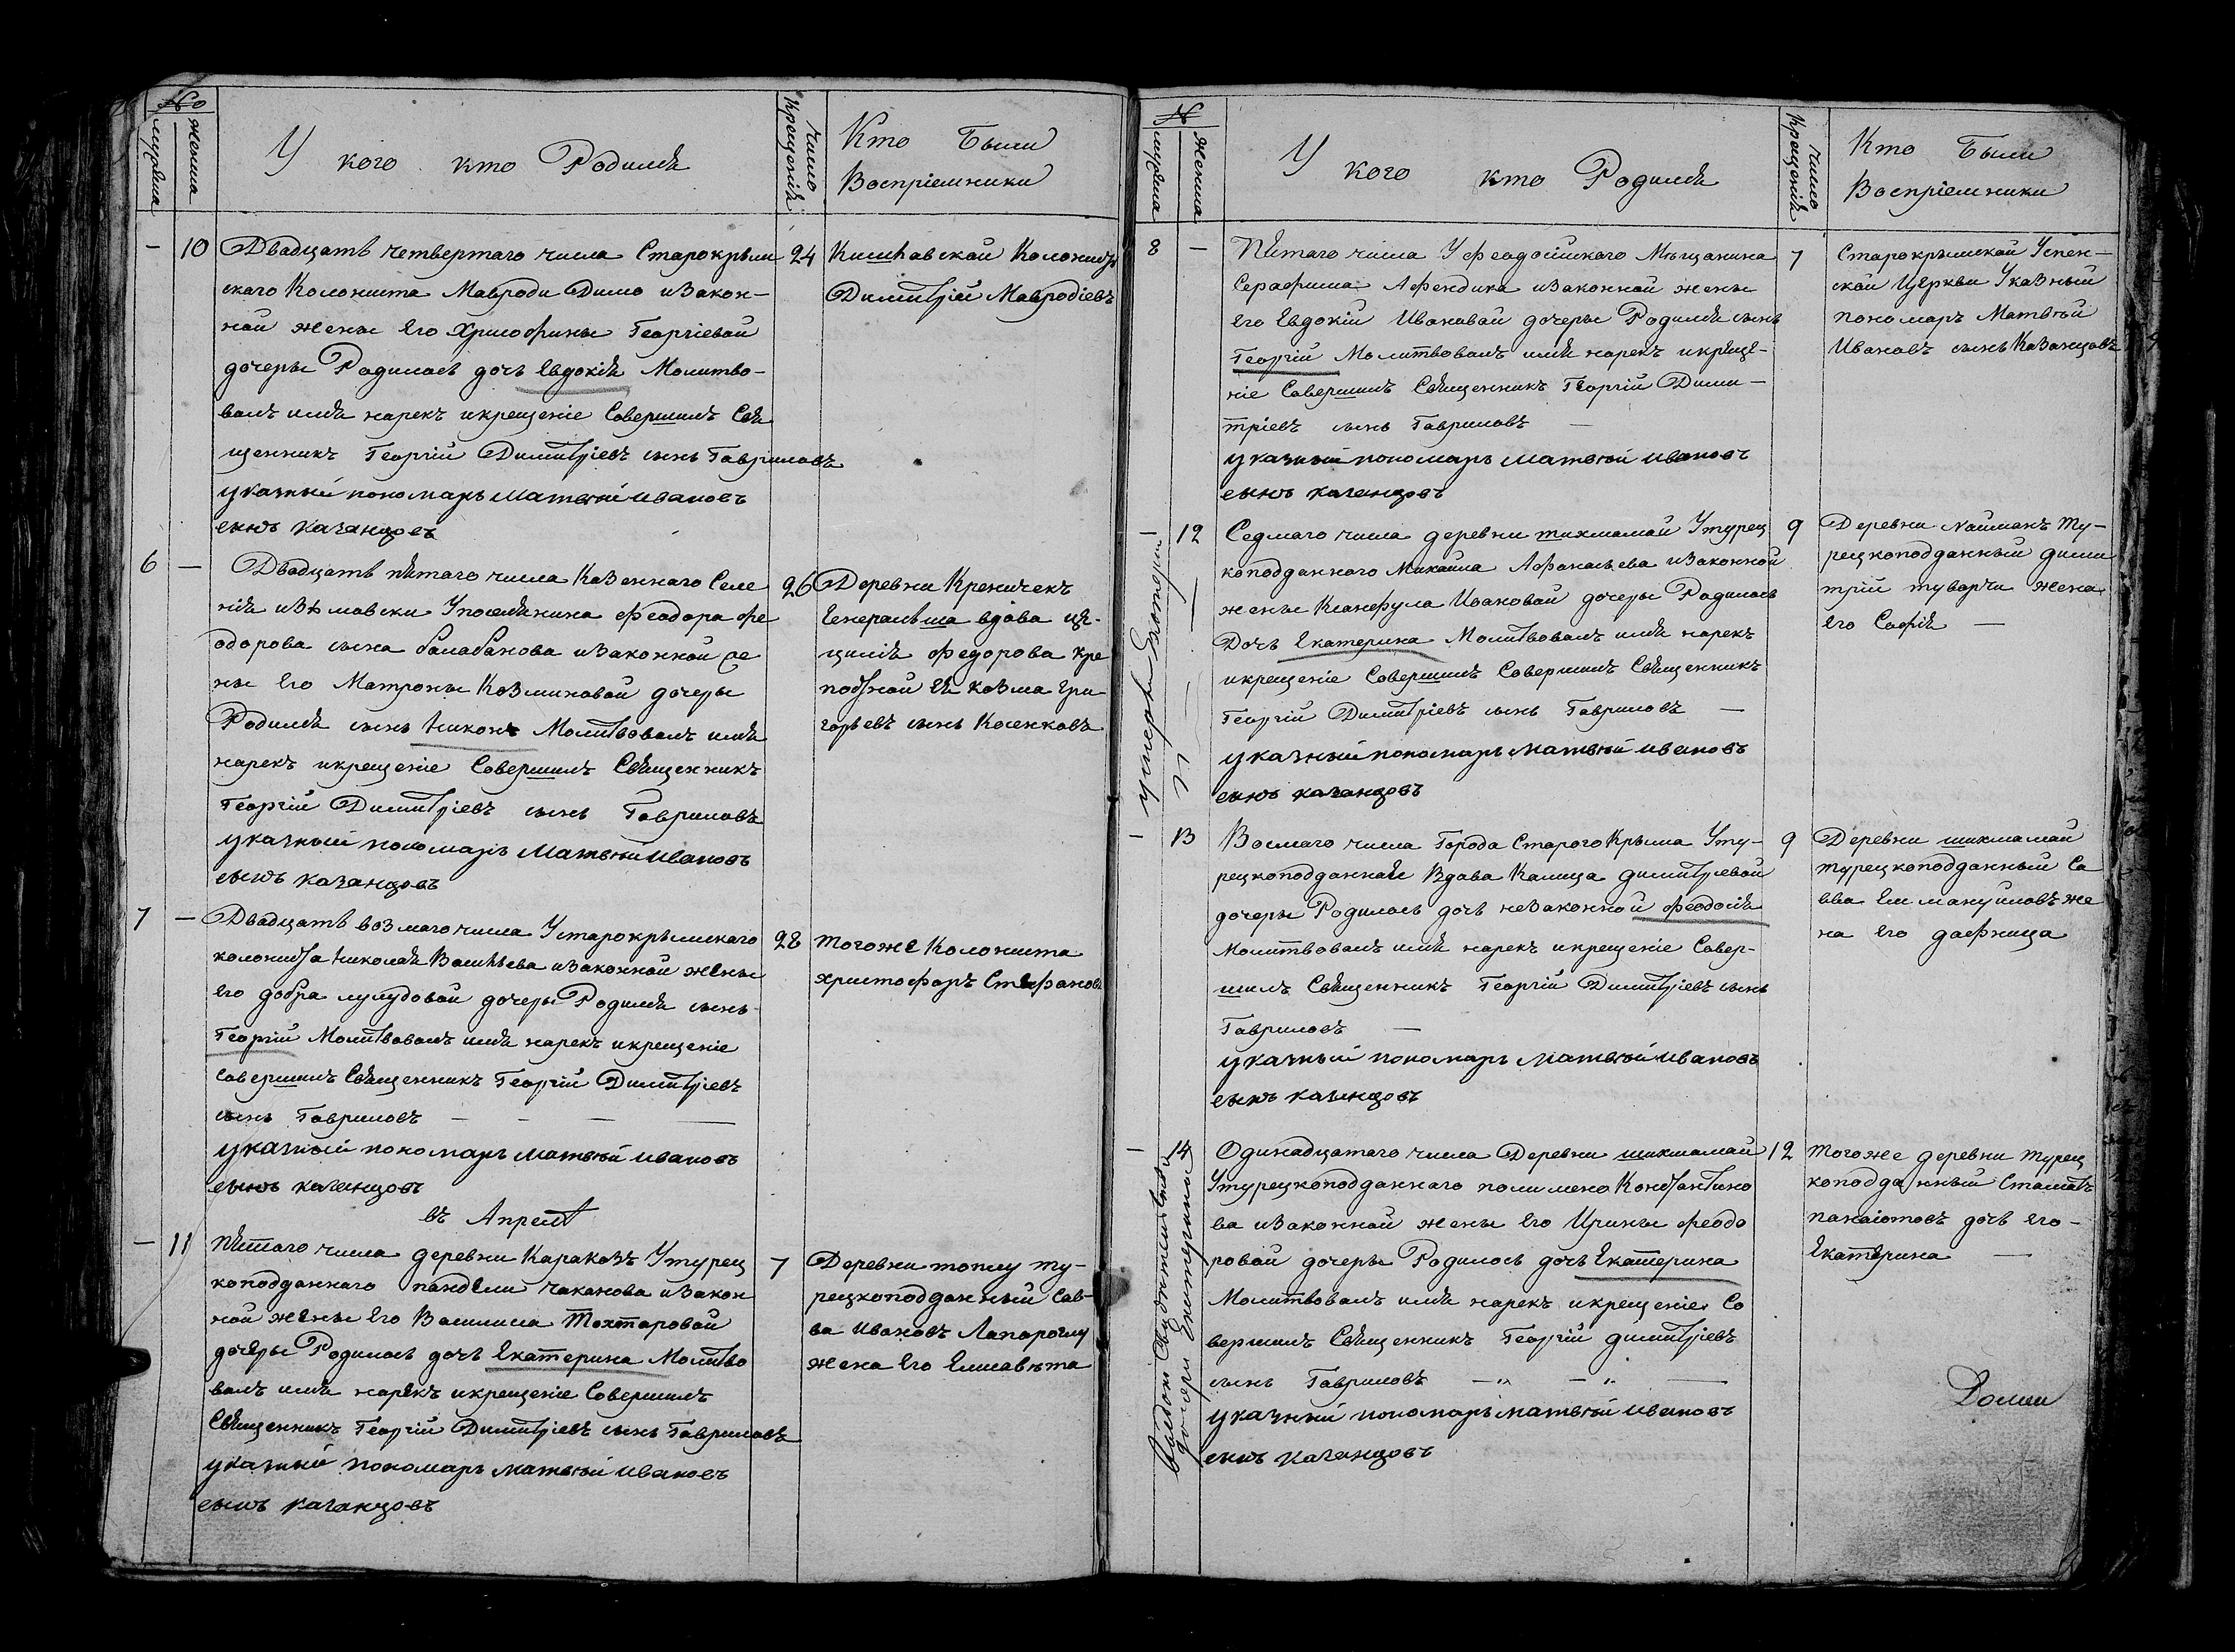 №
мужеска
женска
У кого кто Родился
число
крещенія
Кто Были
Воспріемники
— 10
Двадцать четвертаго числа Старокрым
скаго Колониста Мавроди Димо изакон—
ной жены его Христофины Георгіевой
дочеры Родилась дочь Евдокія Молитво—
валъ имя нарекъ икрещеніе Совершилъ Свя
щенникъ Георгій Димитріевъ сынъ Гавриловъ
указный пономарь Матвѣй Ивановъ
сынъ Казанцовъ
24
Кишлавской Колонистъ
Димитрій Мавродіевъ
6 —
Двадцать пятаго числа Казеннаго Селе
нія изюмовски Упоселянина Феодора Фе
одорова сына балабанова изаконной же
ны его Матроны Козминовой дочеры
Родился сынъ Никонъ Молитвовалъ имя
нарекъ икрещеніе Совершилъ Священникъ
Георгій Димитріевъ сынъ Гавриловъ
указный пономарь Матвѣй Ивановъ
сынъ Казанцовъ
26
Деревни Креничекъ
Генеральша вдова це-
цилія Федорова кре
постной ея Козма Гри
горьевъ сынъ Косенковъ
7 —
Двадцать возмаго числа Устарокрымскаго
колониста Николая Васильева изаконной жены
его добра лулудовой дочеры Родился сынъ
Георгій Молитвовалъ имя нарекъ икрещеніе
совершилъ Священникъ Георгій Димитріевъ
сынъ Гавриловъ — — — —
указный пономарь Матвѣй Ивановъ
сынъ Казанцовъ
28
тогоже Колониста
христофоръ Стефановъ
въ Апрелѣ
— 11
Пятаго числа деревни Каракозъ Утурец
коподданнаго пандели чаканова изакон
ной жены его Василиса Тохтаровой
дочеры Родилась дочь Екатерина Молитво
валъ имя нарекъ икрещеніе Совершилъ
Священникъ Георгій Димитріевъ сынъ Гавриловъ
указный пономарь Матвѣй Ивановъ
сынъ Казанцовъ
7
Деревни топлу ту-
рецкоподданный Сав-
ва Ивановъ Лапороглу
жена его Елисавѣта
№
мужеска
женска
У кого кто Родился
число
крещенія
Кто Были
Воспріемники
8 —
Пятаго числа Уфеодосійскаго Мѣщанина
Серафима Афендика изаконной жены
его Евдокіи Ивановой дочеры Родился сынъ
Георгій Молитвовалъ имя нарекъ икреще-
ніе Совершилъ Священникъ Георгій Дими—
тріевъ сынъ Гавриловъ —
указный пономарь Матвѣй Ивановъ
сынъ Казанцовъ
7
Старокрымской Успен—
ской Церкви Указный
пономарь Матвѣй
Ивановъ сынъ Казанцовъ
умерла Екатерина
— 12
Седмаго числа деревни шихмамай Утурец
коподданнаго Михаила Афанасьева изаконной
жены Кіанфула Ивановой дочеры Родилась
Дочь Екатерина Молитвовалъ имя нарекъ
икрещеніе Совершилъ Совершилъ Священникъ
Георгій Димитріевъ сынъ Гавриловъ —
указный пономарь Матвѣй Ивановъ
сынъ Казанцовъ
9
Деревни Найманъ ту—
рецкоподданный дими
трій туварчи жена
его Софія —
— 13
Восмаго числа Города Старого Крыма Уту-
рецкоподданная Вдова Калица димитріевой
дочеры Родилась дочь незаконной феодосія
Молитвовалъ имя нарекъ икрещеніе Совер-
шилъ Священникъ Георгій Димитріевъ сынъ
Гавриловъ —
указный пономарь Матвѣй Ивановъ
сынъ Казанцовъ
9
Деревни шихмамай
турецкоподданный Са
вва Еммануиловъ же
на его дафница
— 14
Одинадцатаго числа Деревни шихмамай
Утурецкоподданнаго полимено Константино
ва изаконной жены его Ирины феодо
ровой дочеры Родилась дочь Екатерина
Молитвовалъ имя нарекъ икрещеніе Со
вершилъ Священникъ Георгій димитріевъ
сынъ Гавриловъ
указный пономарь Матвѣй Ивановъ
сынъ Казанцовъ
12
тогоже деревни турец
коподданный Стаматъ
панаіотовъ дочь его-
Екатерина —
дочери Екатерины